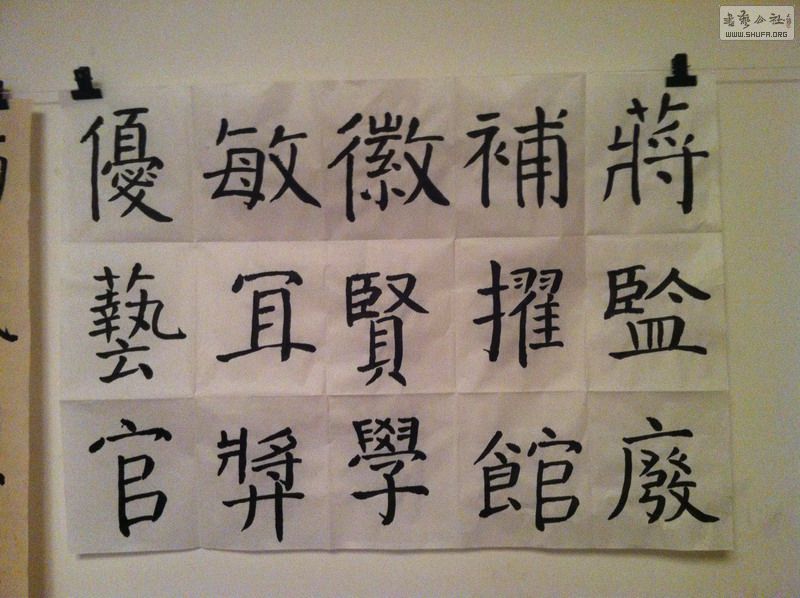 蔣監廢
補擢館
徽賢學
敏冝㢡
優藝官
書藝公社
WWW.SHUFA.ORG